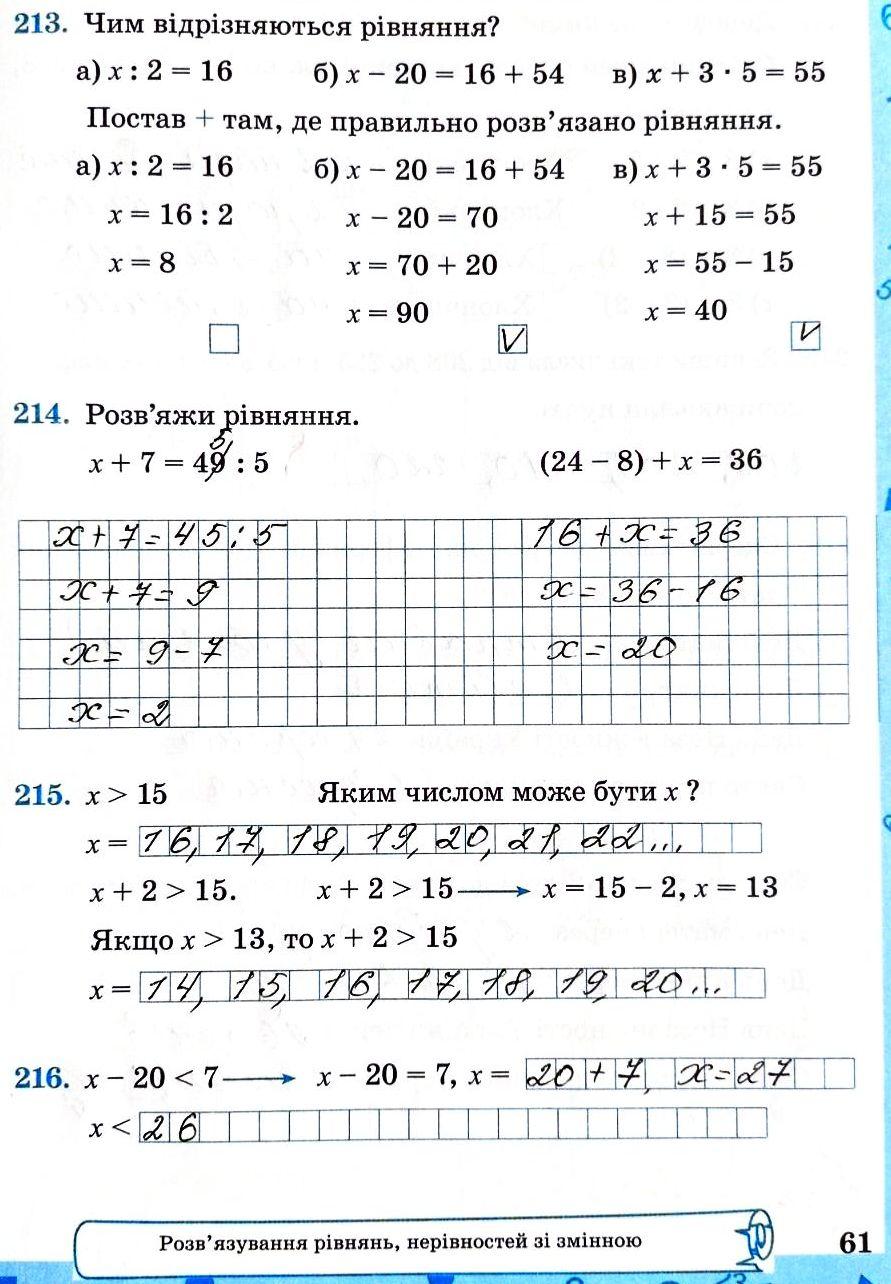 213. Чим відрізняються рівняння?
а) x : 2 = 16 б) x − 20 = 16 + 54 в) x + 3 · 5 = 55
Постав + там, де правильно розв’язано рівняння.
а) x : 2 = 16 б) x − 20 = 16 + 54 в) x + 3 · 5 = 55
x = 16 : 2 x − 20 = 70 x + 15 = 55
x = 8 x = 70 + 20 x = 55 − 15
x = 90 x = 40
V V
214. Розв’яжи рівняння.
5
x + 7 = 49 : 5 (24 − 8) + x = 36
x + 7 = 45 : 5 16 + x = 36
x + 7 = 9 x = 36 − 16
x = 9 − 7 x = 20
x = 2
215. x > 15 Яким числом може бути x ?
x = 16, 17, 18, 19, 20, 21, 22...
x + 2 > 15. x + 2 > 15 → x = 15 − 2, x = 13
Якщо x > 13, то x + 2 > 15
x = 14, 15, 16, 17, 18, 19, 20...
216. x − 20 < 7 → x − 20 = 7, x = 20 + 7, x = 27
x < 26
Розв’язування рівнянь, нерівностей зі змінною 61